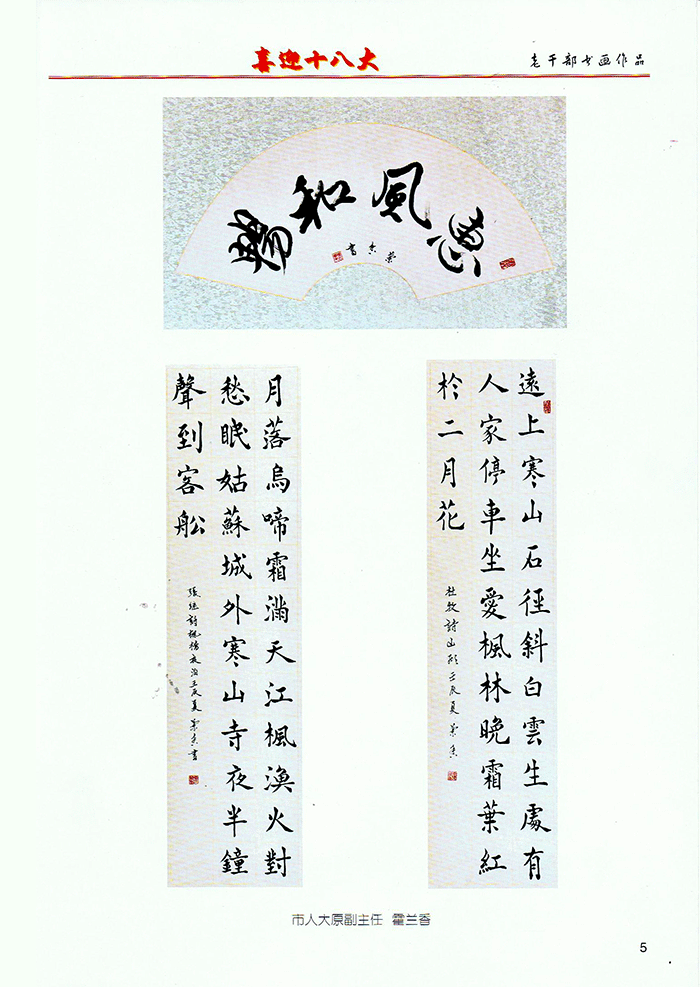 喜迎十八大
老干部书画作品
惠風和暢
蘭香書
遠上寒山石徑斜白雲生處有
人家停車坐愛楓林晚霜葉紅
於二月花
杜牧詩山行壬辰夏蘭香
月落烏啼霜滿天江楓漁火對
愁眠姑蘇城外寒山寺夜半鐘
聲到客舩
張继詩楓橋夜泊壬辰夏蘭香書
市人大原副主任 霍兰香
5